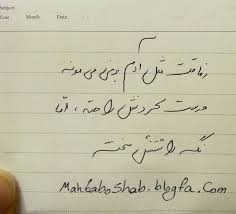 Subject
Year Month Date
رفاقت مثل آدم برفی می مونه
درست کردنش راحته ، اما
نگه داشتنش سخته
Mahtaboshab.blogfa.Com